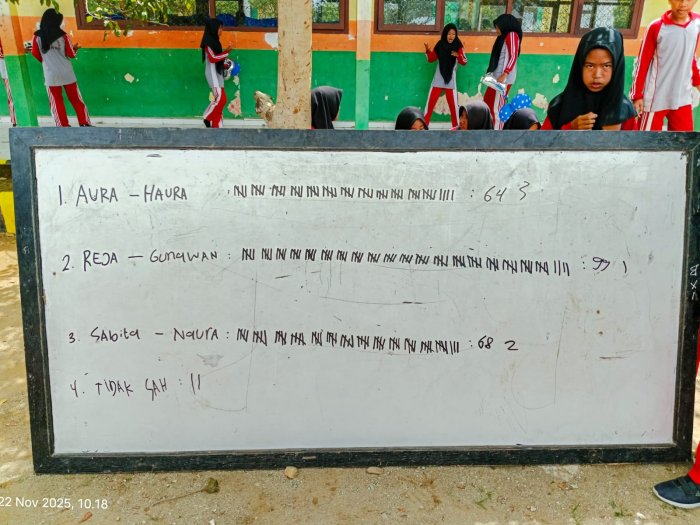 1. AURA - HAURA : 64 3
2. REJA - GUNAWAN : 99 1
3. Sabita - Naura : 68 2
4. TIDAK SAH : ||
22 Nov 2025, 10.18